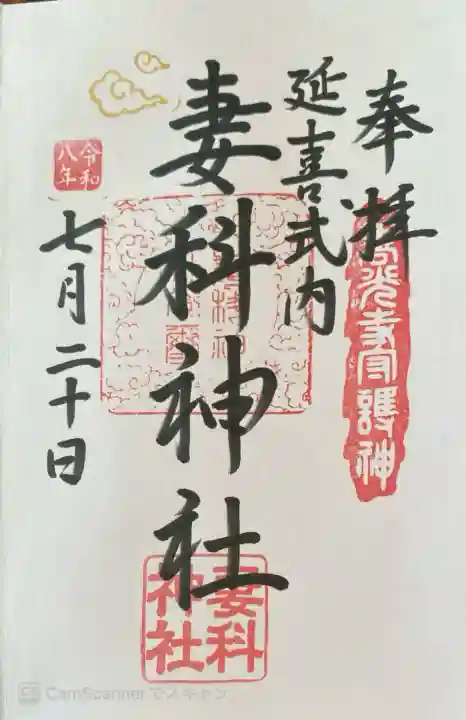 奉拝
善光寺守護神
延喜式内
妻科神社
妻科
神社
令和
八年
七月二十日
CamScannerでスキャン